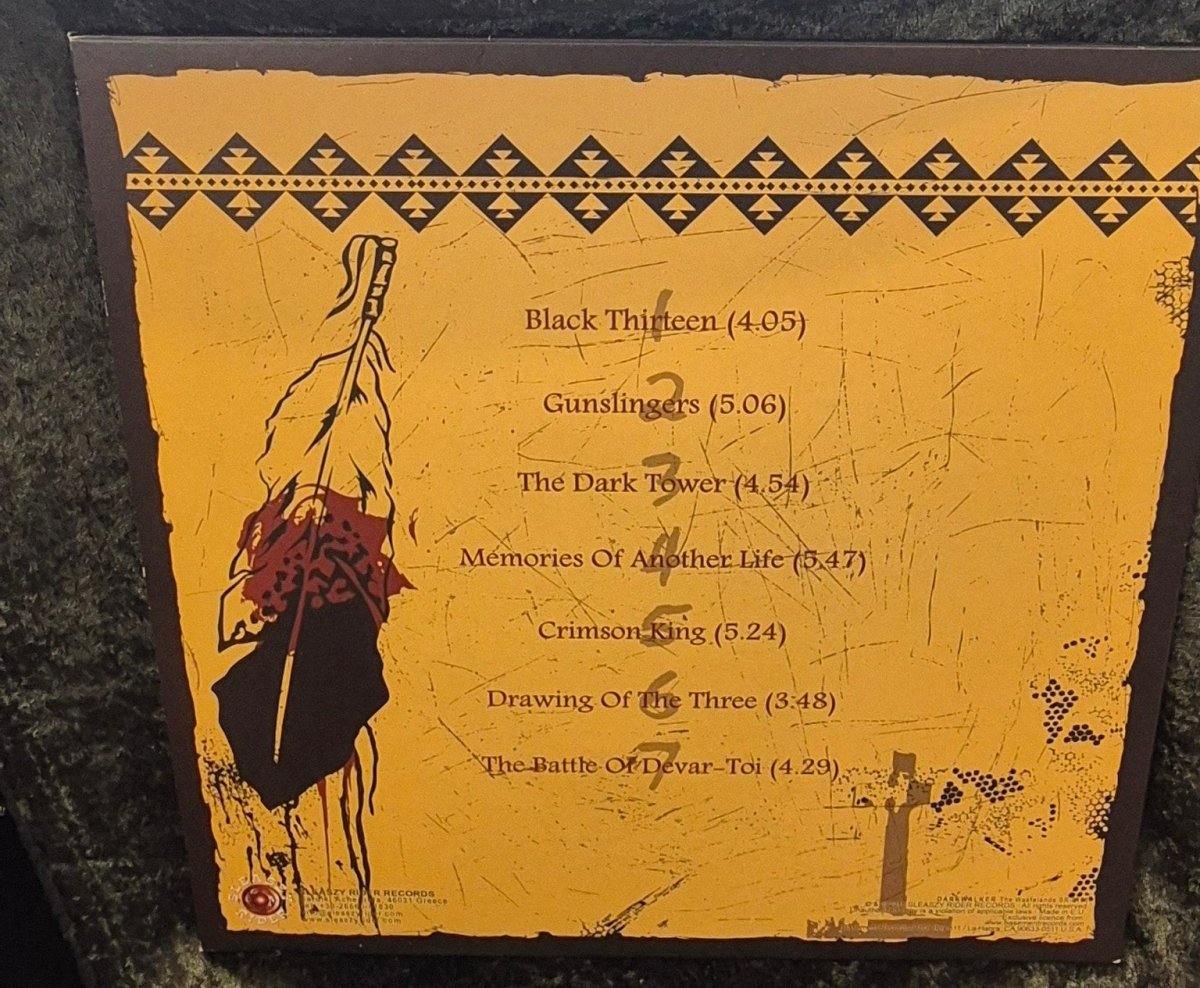 1
Black Thirteen (4.05)
2
Gunslingers (5.06)
3
The Dark Tower (4.54)
4
Memories Of Another Life (5.47)
5
Crimson King (5.24)
6
Drawing Of The Three (3.48)
7
The Battle Of Devar-Toi (4.29)
SLEASZY RIDER RECORDS
46031 Greece
www.sleaszyrider.com
DARKWALKER The Wastelands
SLEASZY RIDER RECORDS. All rights reserved.
is a violation of applicable laws. Made in E.U.
Exclusive licence from
La Habra, CA 90633-0511 U.S.A.